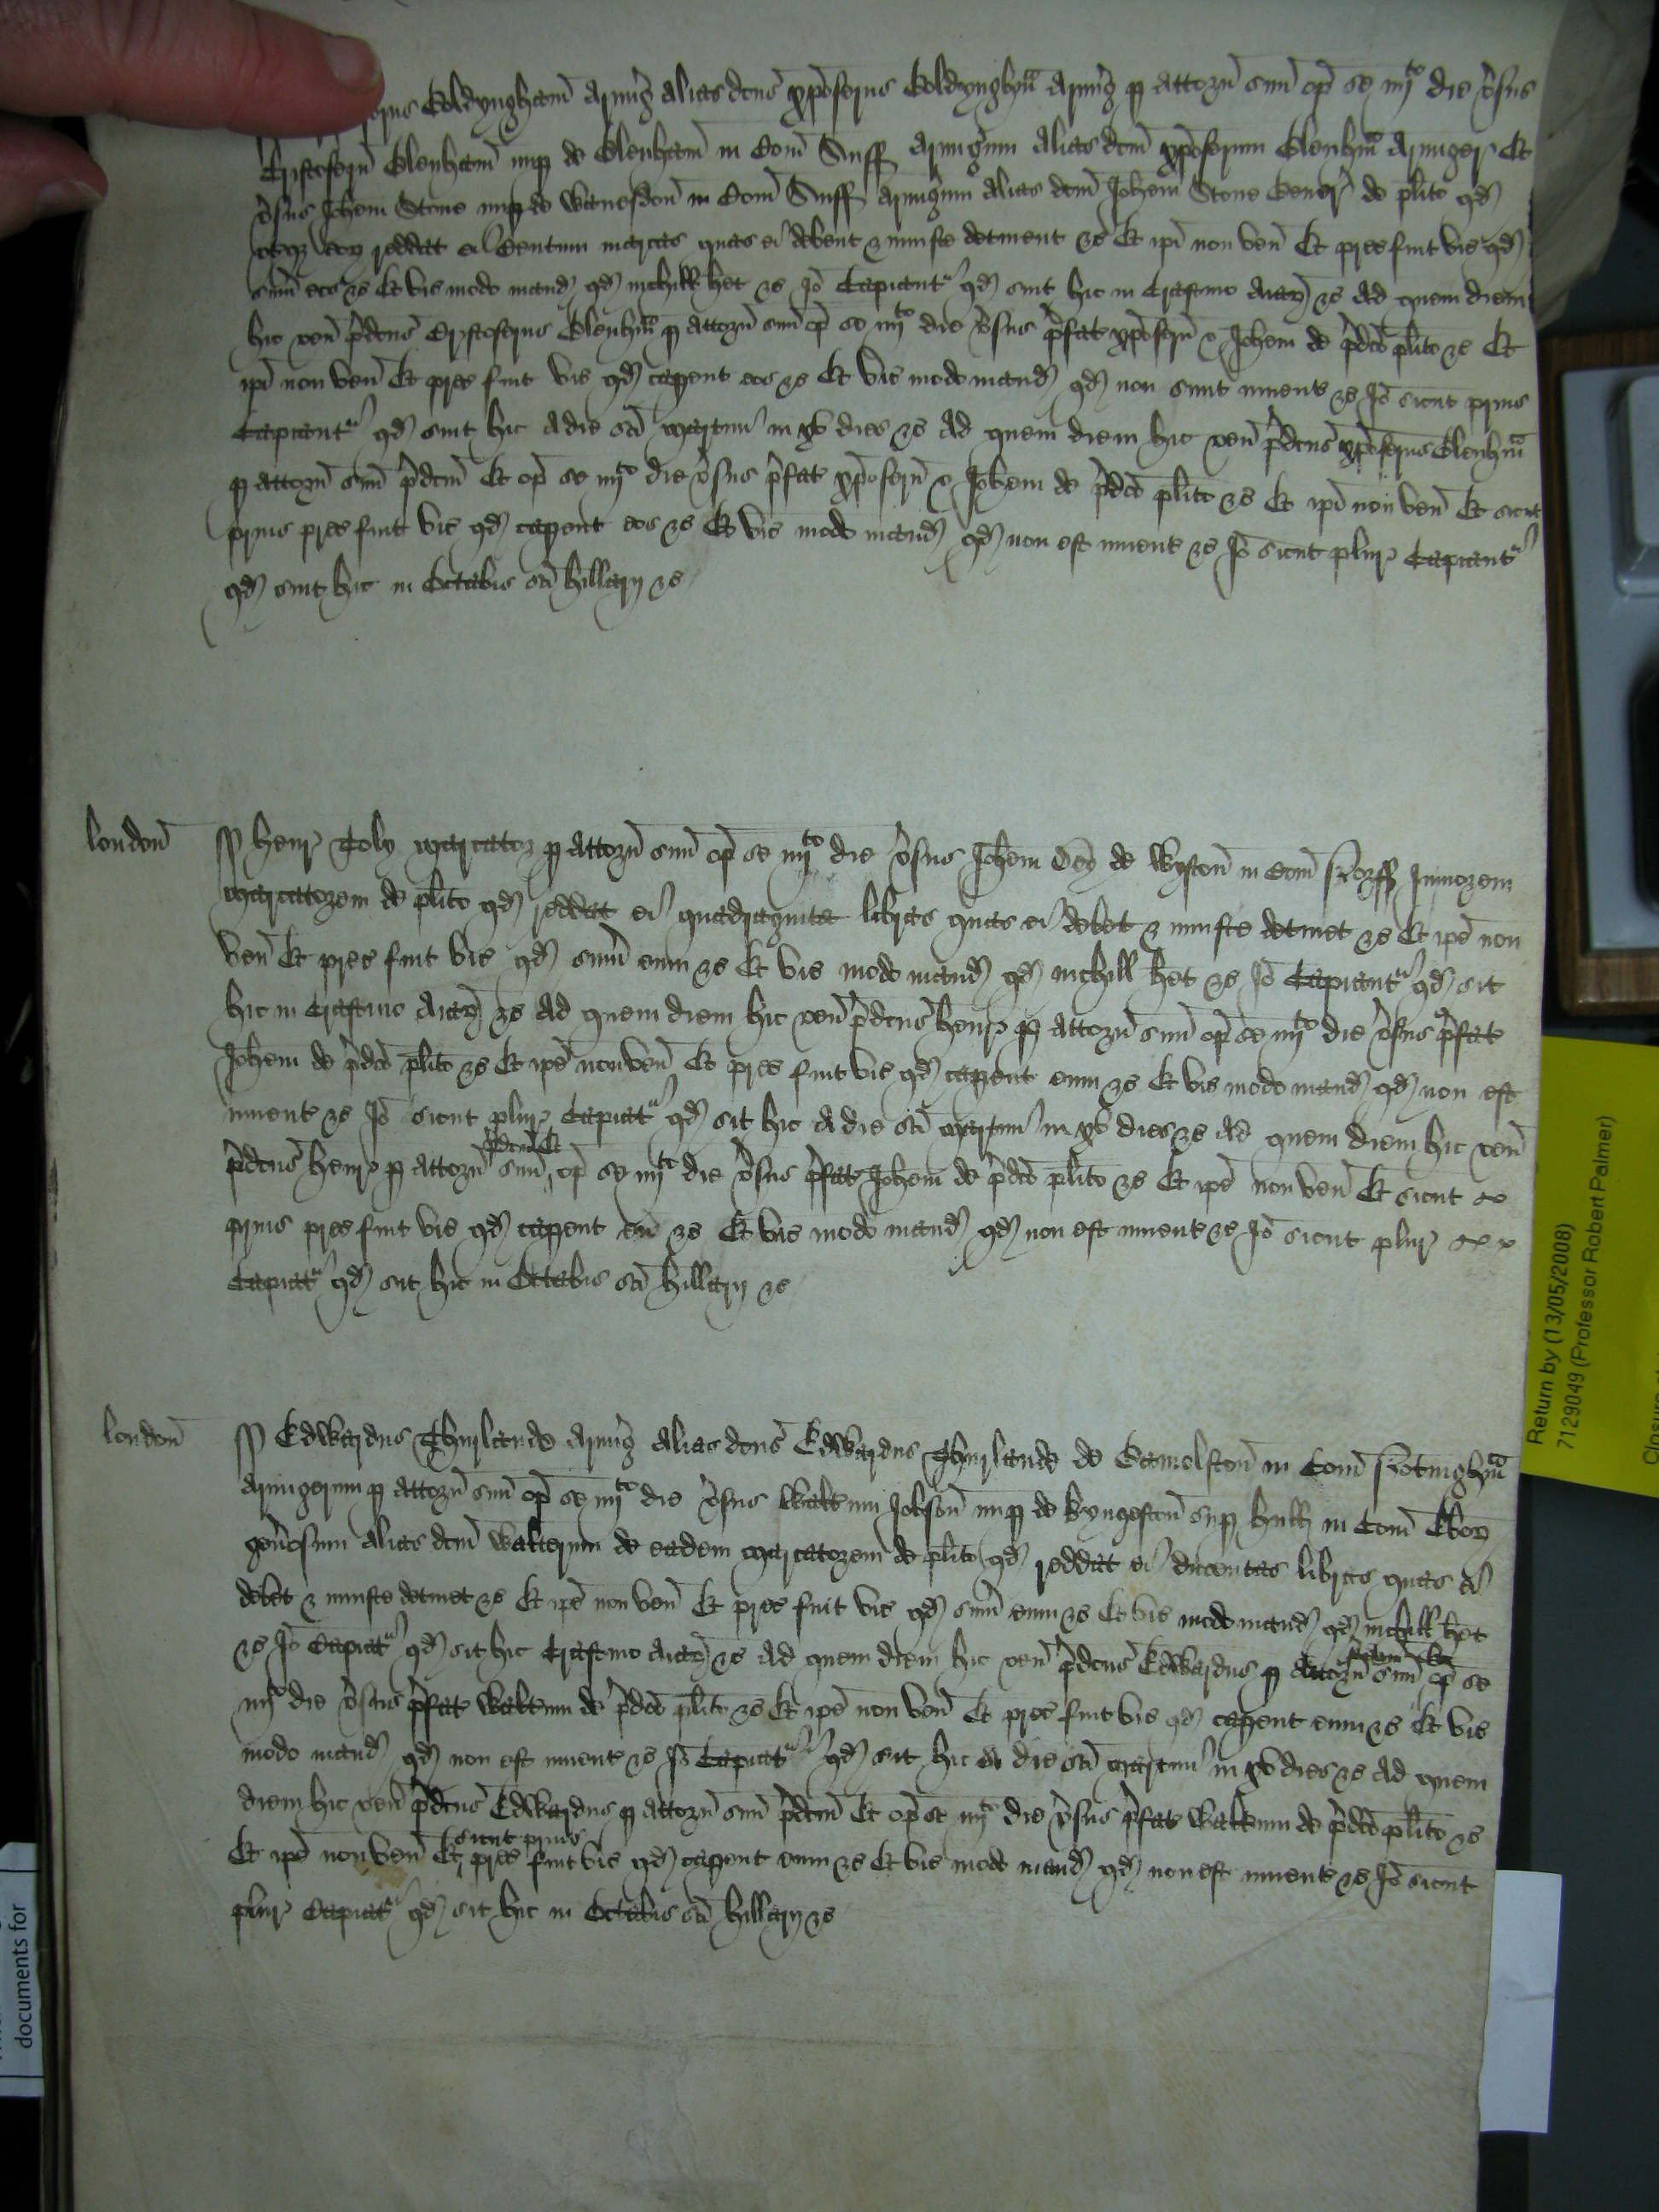 Coldyngham Armig alias dcus xpoferus Coldynghm Armig p attorn suu op se iiijto die vsus
Cristoferu Glenham nup de Glenham in Com Suff Armigum alias dcm xpoferum Glenhm Armiger Et
vsus Johem Stone nup de in Com Suff Armigum alias dcm Johem Stone de plito qd
reddat ei Centum marcas quas ei debent & iniuste detinent &c Et ipi non ven Et prec fuit vic qd
sum eos &c Et vic modo mand qd nichill het &c Io Capiantr qd sint hic in Crastino Aiaz &c Ad quem diem
hic ven pdcus Cristoferus Glenhm p attorn suu op se iiijto die vsus pfat xpoferu & Johem de pdco plito &c Et
ipi non ven Et prec fuit vic qd capent eos &c Et vic modo mand qd non sunt invent &c Io sicut prius
Capiantr qd sint hic A die sci Martini in xv dies &c Ad quem diem hic ven pdcus xpoferus Glenhm
p attorn suu pdcm Et op se iiijto die vsus pfat xpoferu & Johem de pdco plito &c Et ipi non ven Et sicut
prius prec fuit vic qd capent eos &c Et vic modo mand qd non est invent &c Io sicut plur Capiantr
qd sint hic in Octabis sci hillarij &c
london
Henr Toly Marcator p attorn suu op se iiijto die vsus Johem de Wyston in Com Norff Juniorem
Marcatorem de plito qd reddat ei quadraginta libras quas ei debet & iniuste detinet &c Et ipe non
ven Et prec fuit vic qd sum eum &c Et vic modo mand qd nichill het &c Io Capiantr qd sit
hic in Crastino Aiaz &c Ad quem diem hic ven pdcus henr p attorn suu op se iiijto die vsus pfat
Johem de pdco plito &c Et ipe non ven Et prec fuit vic qd capent eum &c Et vic modo mand qd non est
invent &c Io sicut plur Capiatr qd sit hic A die sci Martini in xv dies &c Ad quem diem hic ven
pdcus henr p attorn suu pdcm Et op se iiijto die vsus pfat Johem de pdco plito &c Et ipe non ven Et sicut
prius prec fuit vic qd capent eu &c Et vic modo mand qd non est invent &c Io sicut plur
Capiatr qd sit hic in Octabis sci hillarij &c
london
Edwardus Thurlande Armig alias dcus Edwardus Thurlande de Gamolston in Com Notinghm
Armigerum p attorn suu op se iiijto die vsus Waltum Jobson nup de Kyngeston sup hull in Com Ebor
genosum alias dcm Walterum de eadem Marcatorem de plito qd reddat ei ducentas libras quas ei
debet & iniuste detinet &c Et ipe non ven Et prec fuit vic qd sum eum &c Et vic modo mand qd nichill het
&c Io Capiatr qd sit hic Crastino Aiaz &c Ad quem diem hic ven pdcus Edwardus p attorn suu op se
iiijto die vsus pfat Waltum de pdco plito &c Et ipe non ven Et prec fuit vic qd capent eum &c Et vic
modo mand qd non est invent &c Io Capiatr qd sit hic A die sci Martini in xv dies &c Ad quem
diem hic ven pdcus Edwardus p attorn suu pdcm Et op se iiijto die vsus pfat Waltum de pdco plito &c
Et ipe non ven Et sicut prius prec fuit vic qd capent eum &c Et vic modo mand qd non est invent &c Io sicut
plur Capiatr qd sit hic in Octabis sci hillarij &c
Return by (13/05/2008)
7129049 (Professor Robert Palmer)
documents for